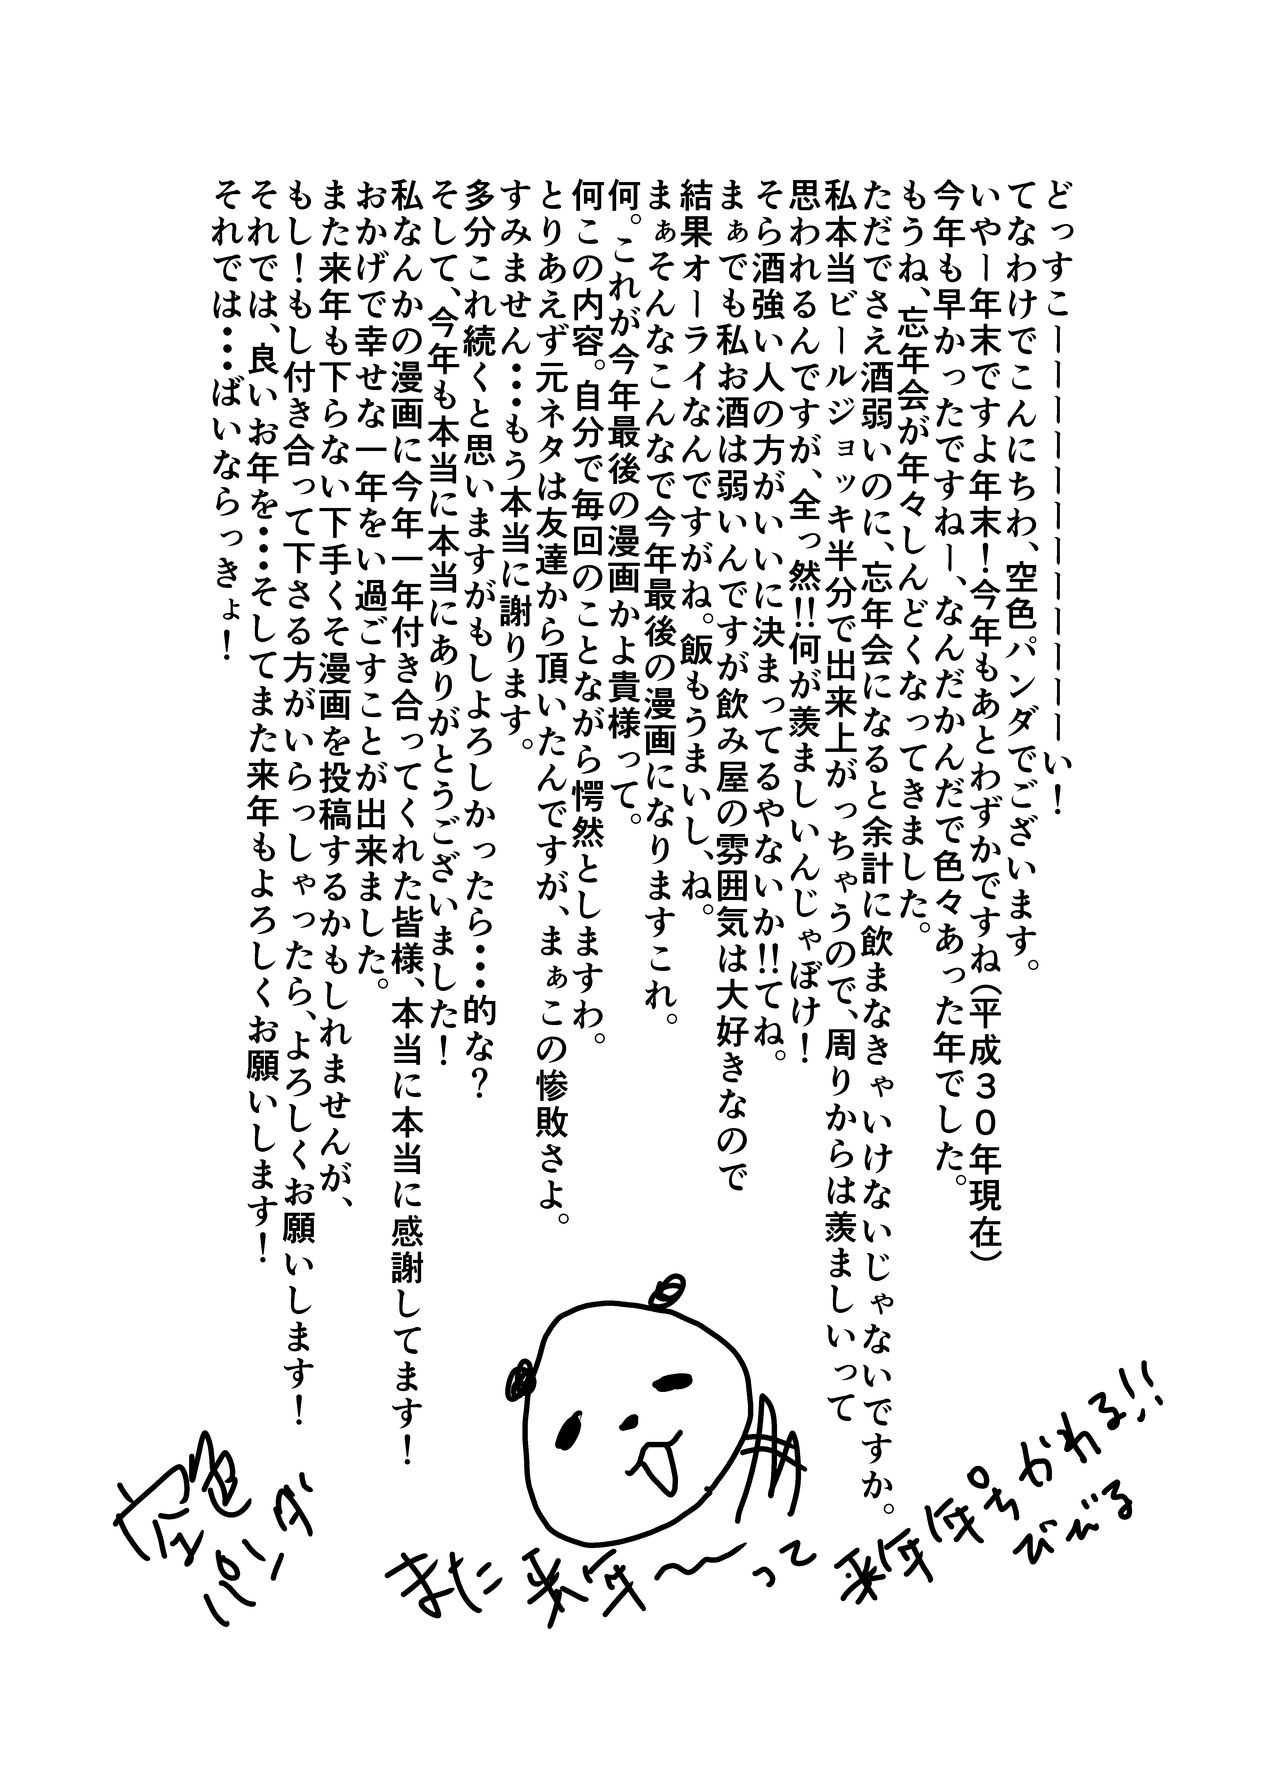 どっすこーーーーーーーーーーーーい！
てなわけでこんにちわ、空色パンダでございます。
いやー年末ですよ年末！今年もあとわずかですね（平成３０年現在）
今年も早かったですねー、なんだかんだで色々あった年でした。
もうね、忘年会が年々しんどくなってきました。
ただでさえ酒弱いのに、忘年会になると余計に飲まなきゃいけないじゃないですか。
私本当ビールジョッキ半分で出来上がっちゃうので、周りからは羨ましいって
思われるんですが、全っ然!!何が羨ましいんじゃぼけ！
そら酒強い人の方がいいに決まってるやないか!!てね。
まぁでも私お酒は弱いんですが飲み屋の雰囲気は大好きなので
結果オーライなんですがね。飯もうまいし、ね。
まぁそんなこんなで今年最後の漫画になりますこれ。
何。これが今年最後の漫画かよ貴様って。
何この内容。自分で毎回のことながら愕然としますわ。
とりあえず元ネタは友達から頂いたんですが、まぁこの惨敗さよ。
すみません…もう本当に謝ります。
多分これ続くと思いますがもしよろしかったら…的な？
そして、今年も本当に本当にありがとうございました！
私なんかの漫画に今年一年付き合ってくれた皆様、本当に本当に感謝してます！
おかげで幸せな一年をい過ごすことが出来ました。
また来年も下らない下手くそ漫画を投稿するかもしれませんが、
もし！もし付き合って下さる方がいらっしゃったら、よろしくお願いします！
それでは、良いお年を…そしてまた来年もよろしくお願いします！
それでは…ばいならっきょ！
空色
パンダ
また来年〜って
来年年号かわる!!
びびる